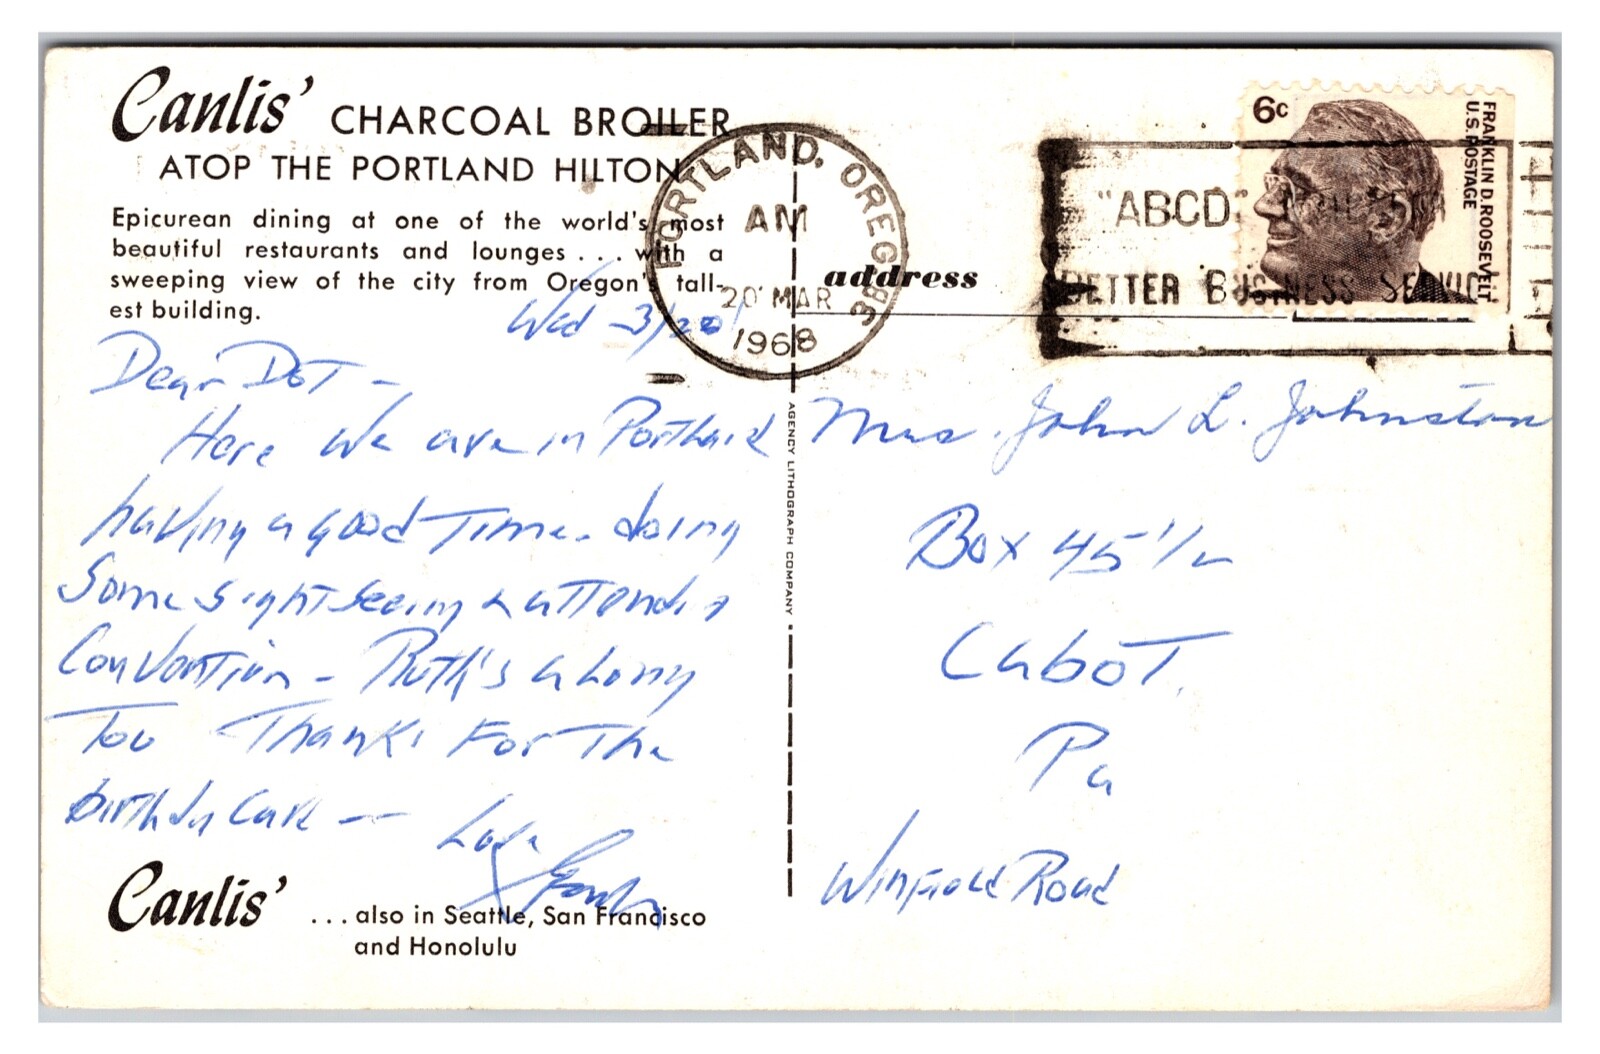 Canlis' CHARCOAL BROILER
ATOP THE PORTLAND HILTON
Epicurean dining at one of the world's most
beautiful restaurants and lounges . . . with a
sweeping view of the city from Oregon's tall-
est building.
Wed - 3/20
Dear Dot -
Here we are in Portland
having a good time. doing
Some sightseeing & attending
Convention - Ruth's along
Too Thanks For The
birthday Card —
Love
Canlis' . . . also in Seattle, San Francisco
and Honolulu
AGENCY LITHOGRAPH COMPANY
PORTLAND, OREG
AM
20 MAR
1968
address
"ABCD"
BETTER BUSINESS SERVICE
6c
FRANKLIN D. ROOSEVELT
U.S. POSTAGE
Mrs. John L. Johnston
Box 45 1/2
Cabot,
Pa
Winfield Road